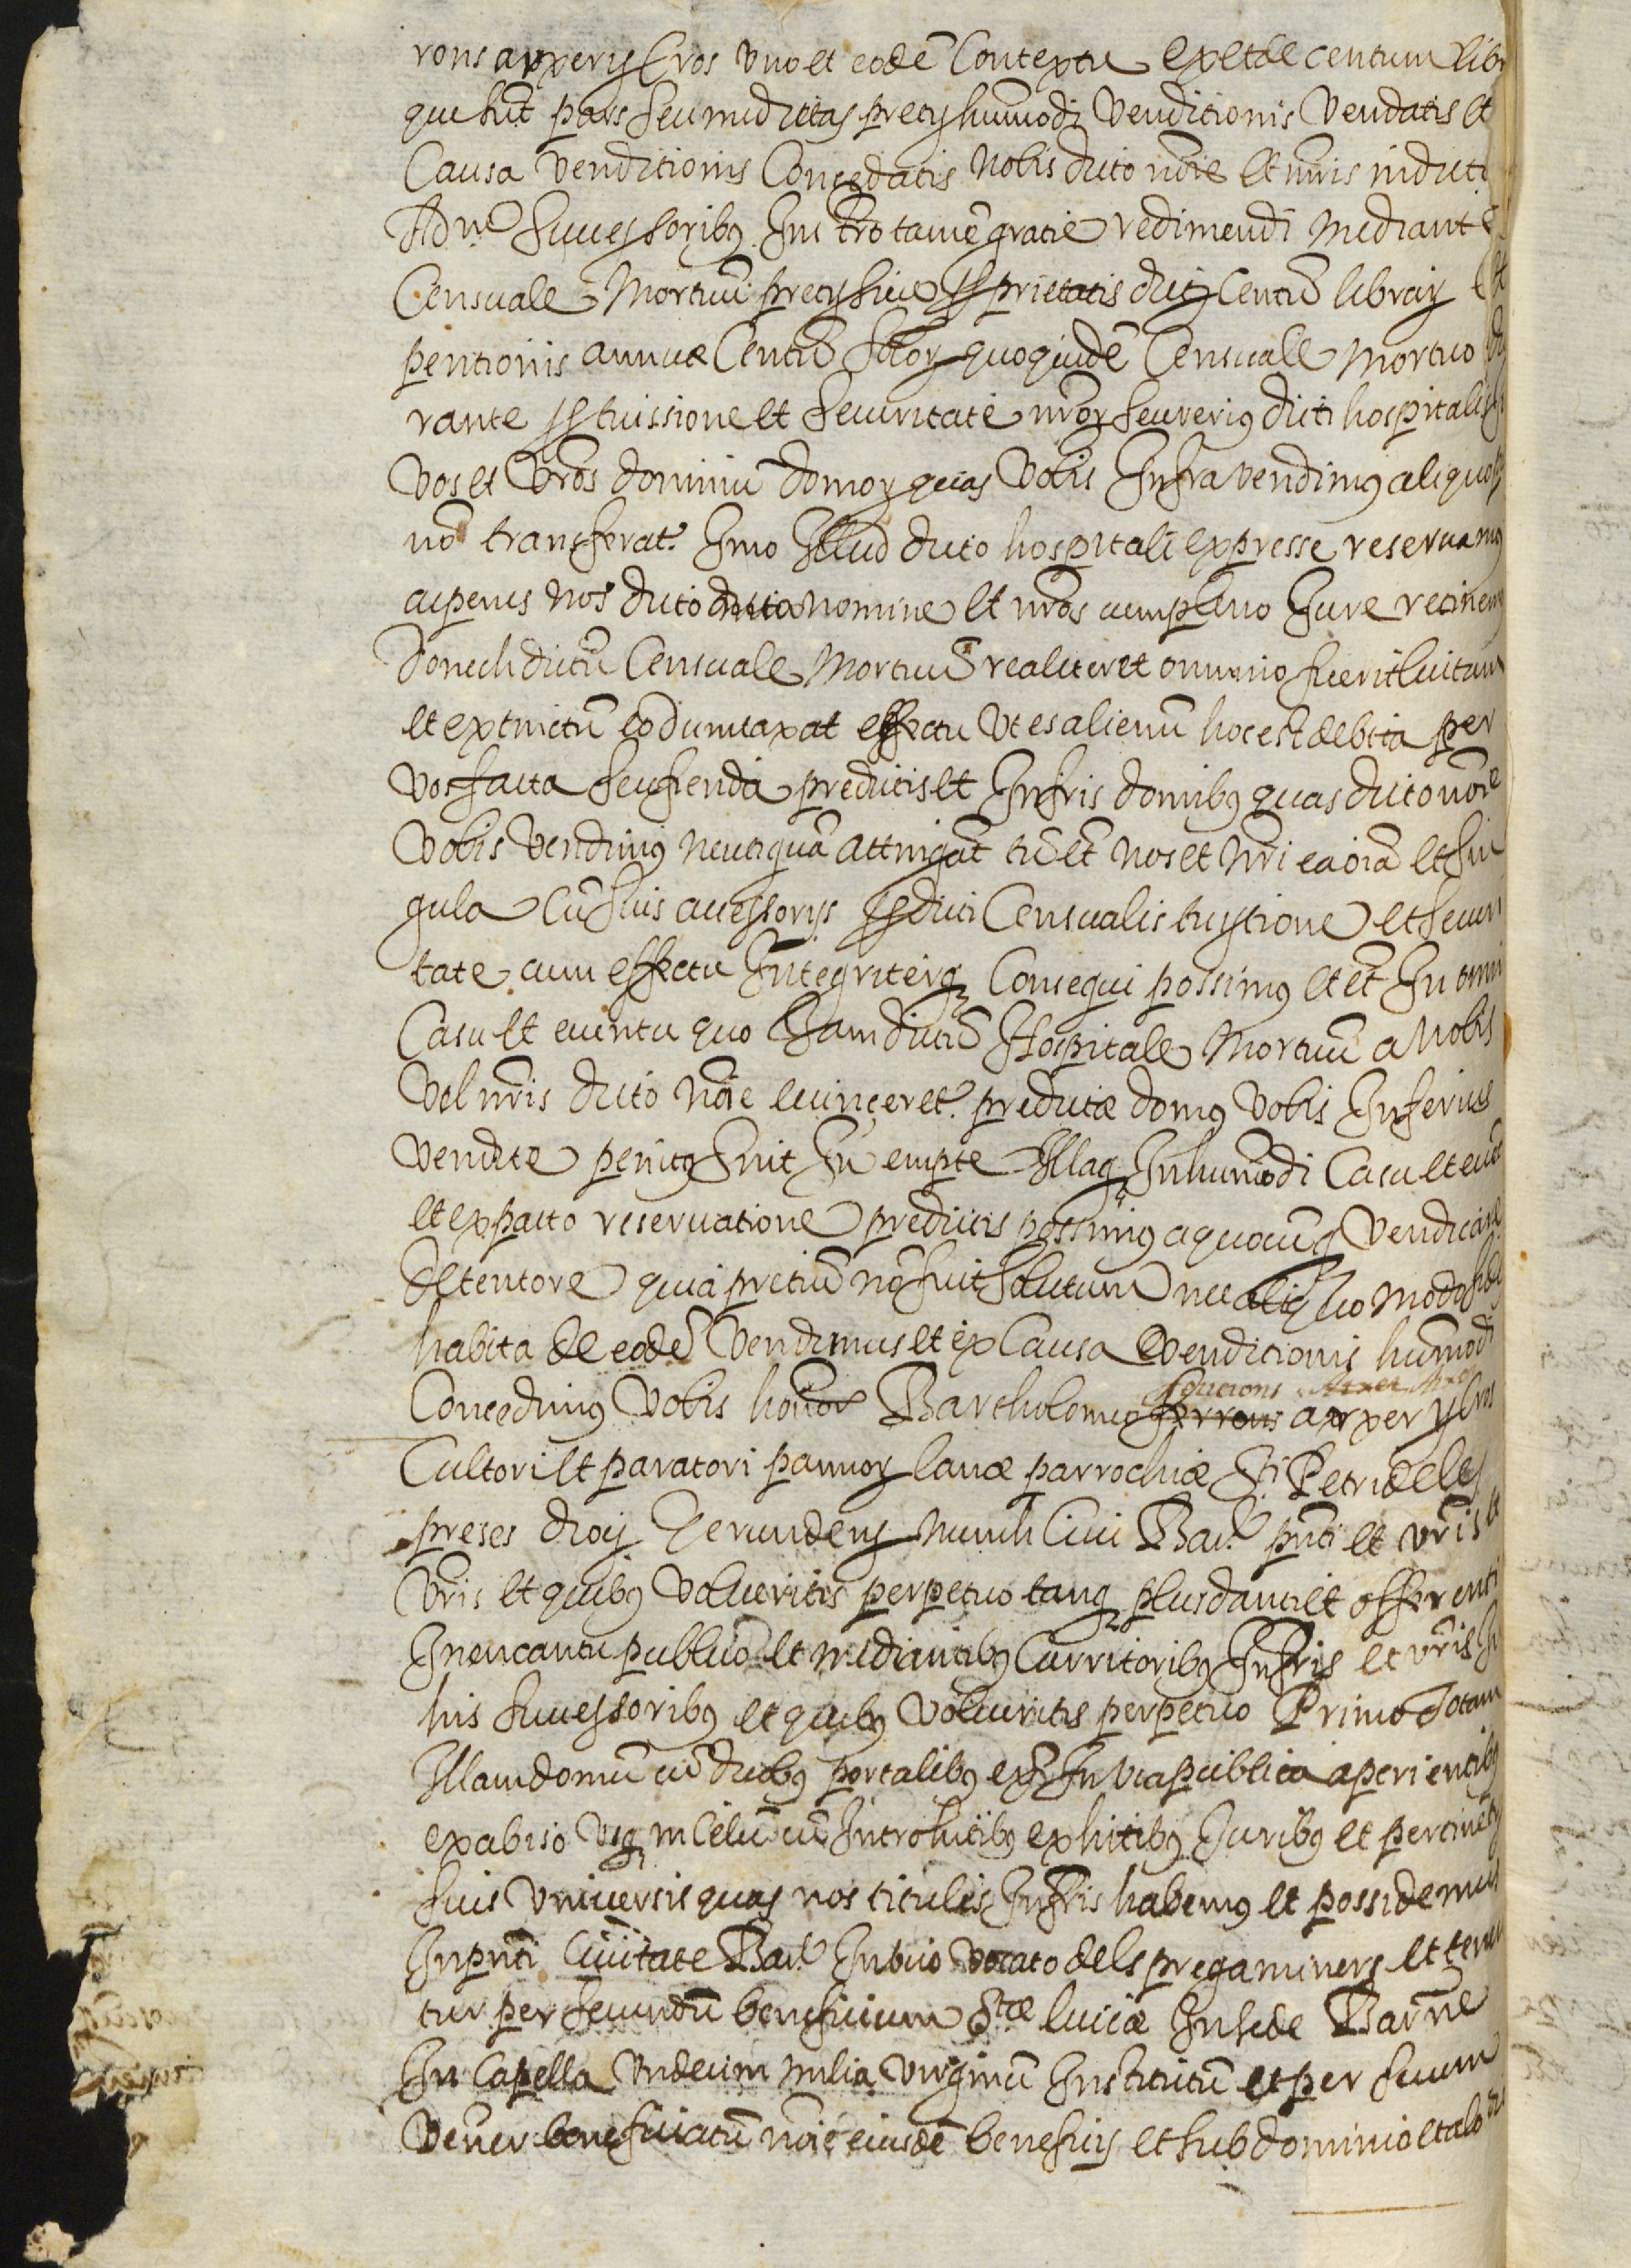 rons arxerys Cros uno et eodē Contextu ex et de centum libr
que sūt pars seu medietas precy hūmodi Venditionis Vendatis et
Causa Venditionis Concedatis Nobis dicto nōīe et nr̄is in dicto
Adne Successoribꝯ Instrō tamē gratie redimendi Mediante
Censuale Mortuū precy sive ꝑprietatis dictꝝ Centū libraꝝ et
pentionis annuæ Centū solꝝ quoquidē Censuale Mortuo
rante ꝑ tuissione et securitate nr̄oꝝ seu veriꝯ dicti hospitalis
Vos et Vr̄os dominiū domoꝝ quas Vobis Infra vendimꝯ aliquo
nō transferat. Imo Illud dicto hospitali expresse reservamꝯ
ac penes nos dicto nomine et nr̄os cum pleno Iure retinemꝯ
donech dictū Censuale Mortuū realiter et omnino fuerit luitum
et extinctū eo dumtaxat effectu Ut es alienū hoc est debita per
Vos facta seu fienda predictis et Infr̄is domibꝯ quas dicto nōīe
Vobis Vendimꝯ neutiquā attingāt tū et̄ nos et Nr̄i ea oīa et sin
gula cū suis accessorys ꝑ dicti Censualis tuytione et securi
tate cum effectu Integriterqꝫ Consequi possimꝯ et et̄ In omni
Casu et eventu quo Iam dictū Hospitale Mortuū a Nobis
Vel nr̄is dicto Nōīe evinceret. predictæ domꝯ Vobis Inferius
Vendite penitꝯ sint In empte Illasqꝫ In hūmodi Casu et evētu
et ex pacto reservatione predictis possimꝯ a quocūqꝫ Vendicare
detentore quia pretiū nō fuit solutum nec aliquo modo fides
habita de eodē Vendimus et ex Causa Venditionis hūmodi
Concedimꝯ Vobis honor Bartholomeo ferrons arxer y Cros
Cultori et paratori pannoꝝ lanæ parrochiæ Sti Petri de les
preses diocꝫ Gerundenꝫ nunch Civi Barꝰ pn̄ti et vr̄is et
Vr̄is et quibꝯ Volueritis perpetuo tanqꝫ plus danti et offerenti
In encantu publico et mediantibꝯ Curritoribꝯ Infr̄is et vr̄is In
his successoribꝯ et quibꝯ Volueritis perpetuo Primo totam
Illam domū cū duobꝯ portalibꝯ ex In via publica aperientibꝯ
ex abiso Usqꝫ in Celū cū Introhitibꝯ exhitibꝯ Iuribꝯ et pertinētꝫ
suis Universis quas nos titulis Infr̄is habemꝯ et possidemus
In pn̄ti Civitate Barꝰ In vico vocato dels pregaminers et tene
tur per secundū beneficium Stæ luciæ In sede Barn̄e
In Capella Undecim milia virginū Institutū et per suum
Vener beneficiatū nōīe eiusdē beneficy et sub dominio et alo